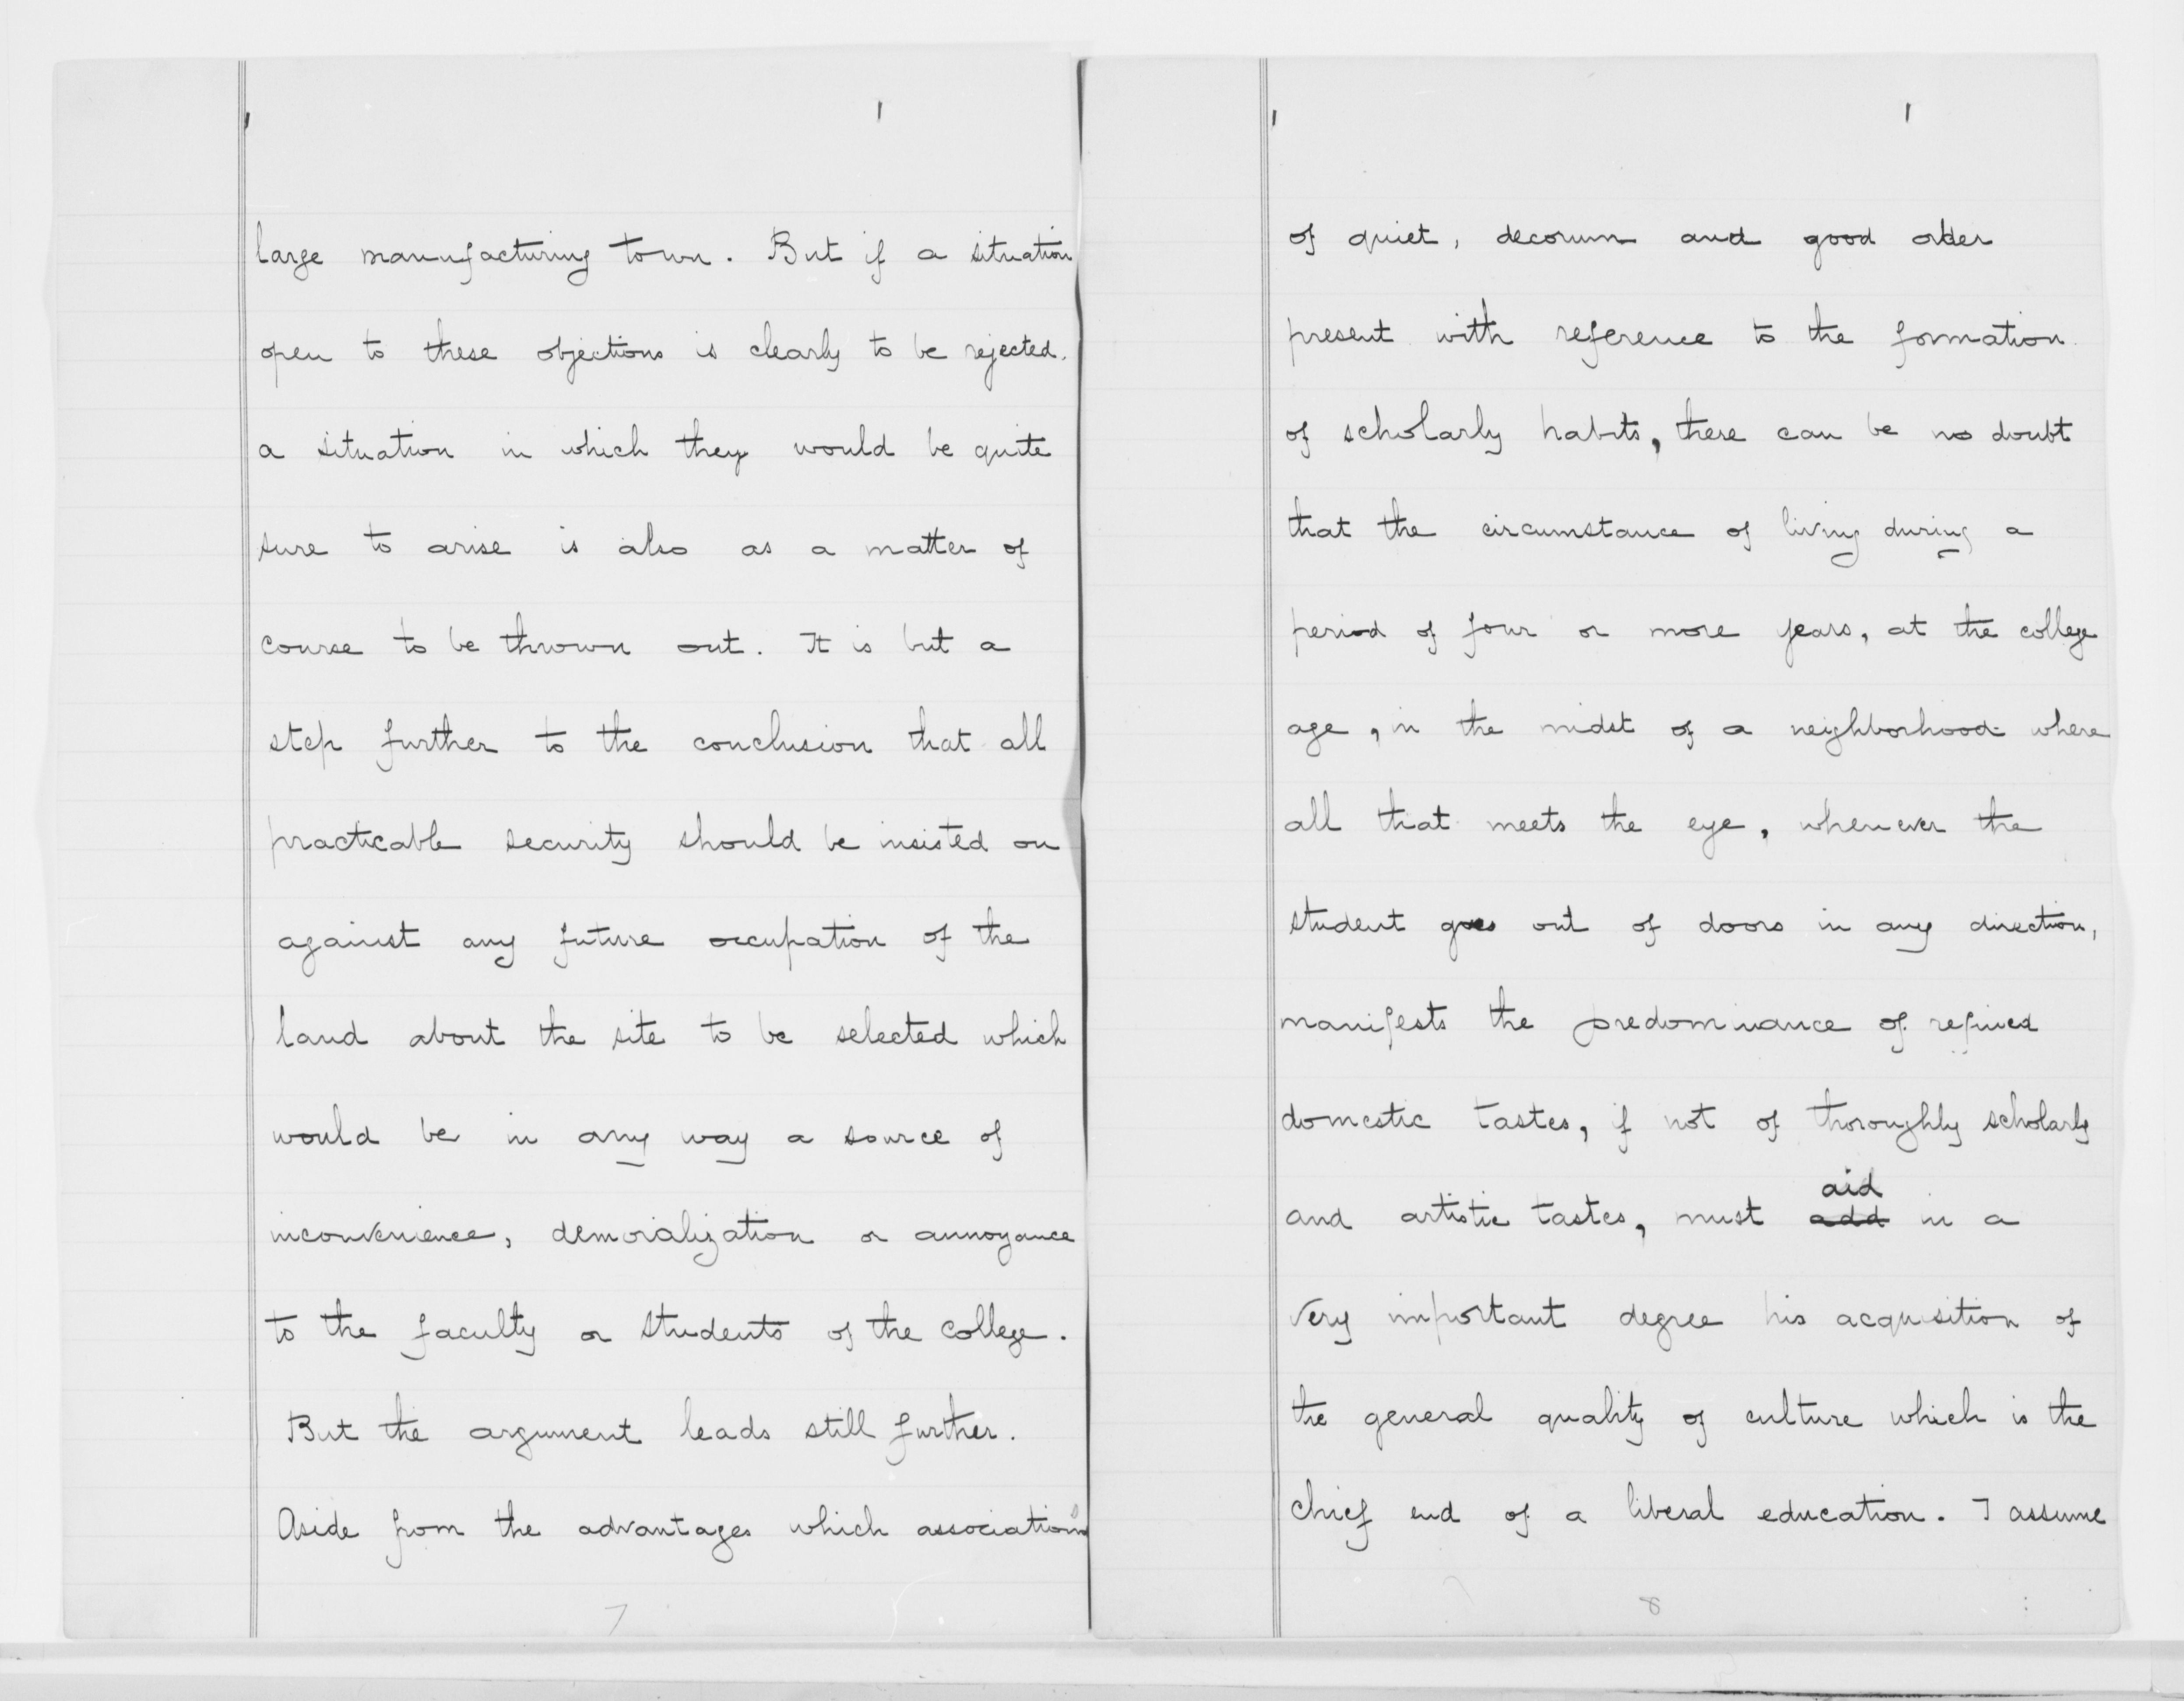 large manufacturing town. But if a situation
open to these objections is clearly to be rejected.
a situation in which they would be quite
sure to arise is also as a matter of
course to be thrown out. It is but a
step further to the conclusion that all
practicable security should be insisted on
against any future occupation of the
land about the site to be selected which
would be in any way a source of
inconvenience, demoralization or annoyance
to the faculty or students of the college.
But the argument leads still further.
Aside from the advantages which associations
7
of quiet, decorum and good order
present with reference to the formation
of scholarly habits, there can be no doubt
that the circumstance of living during a
period of four or more years, at the college
age, in the midst of a neighborhood where
all that meets the eye, whenever the
student goes out of doors in any direction,
manifests the predominance of refined
domestic tastes, if not of thoroughly scholarly
aid
and artistic tastes, must add in a
very important degree his acquisition of
the general quality of culture which is the
chief end of a liberal education. I assume
8